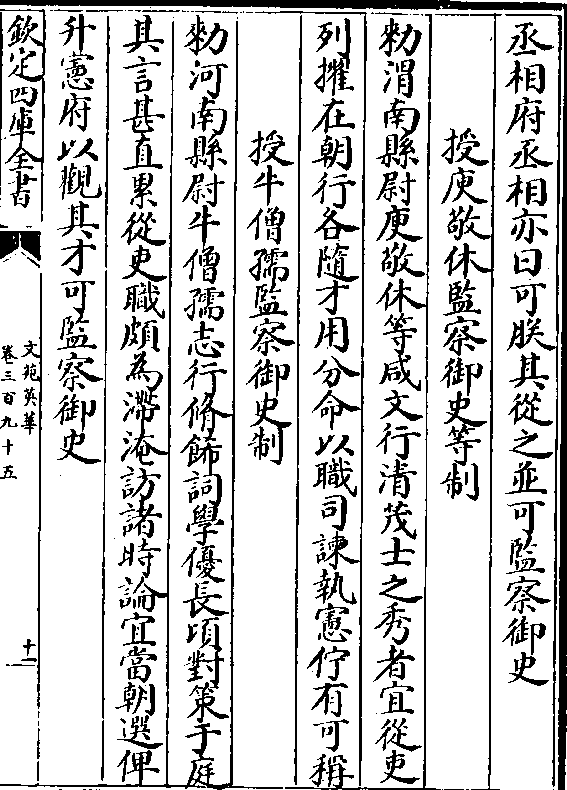 丞相府丞相亦曰可朕其從之並可監察御史
授庾敬休監察御史等制
勑渭南縣尉庾敬休等咸文行清茂士之秀者宜從吏
列擢在朝行各隨才用分命以職司諫執憲佇有可稱
授牛僧孺監察御史制
勑河南縣尉牛僧孺志行脩飾詞學優長頃對策于庭
其言甚直累從吏職頗為滯淹訪諸時論宜當朝選俾
升憲府以觀其才可監察御史
欽定四庫全書
文苑英華
卷三百九十五
十一